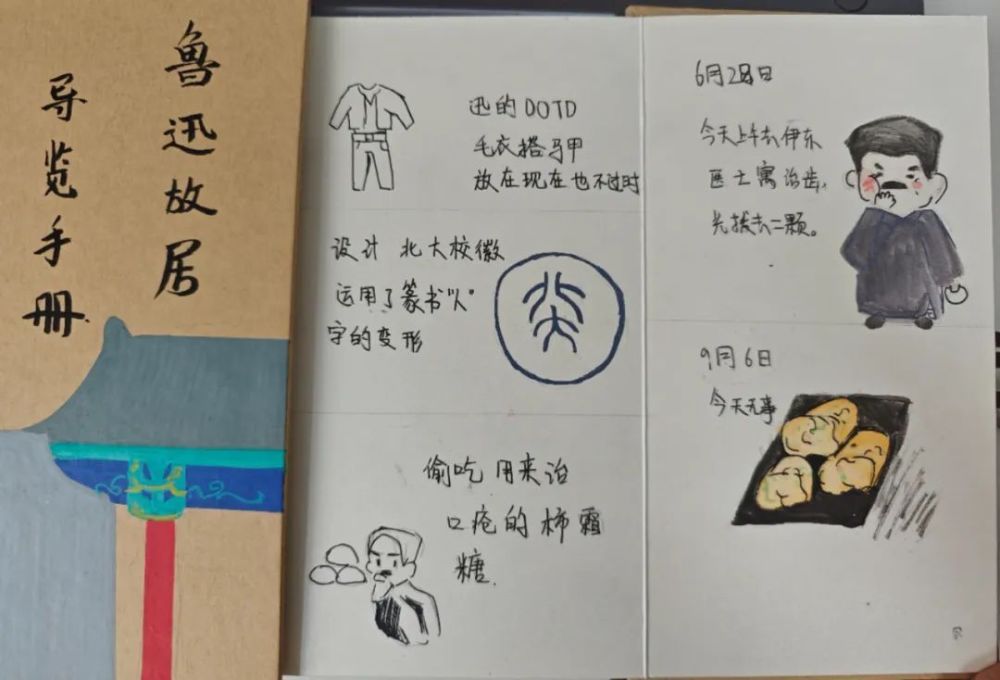 鲁迅故居
导览手册
迅的OOTD
毛衣搭马甲
放在现在也不过时
设计 北大校徽
运用了篆书"人"
字的变形
偷吃 用来治
口疮的柿霜
糖.
6月28日
今天上午去伊东
医士寓治齿,
先拔去二颗。
9月6日
今天无事